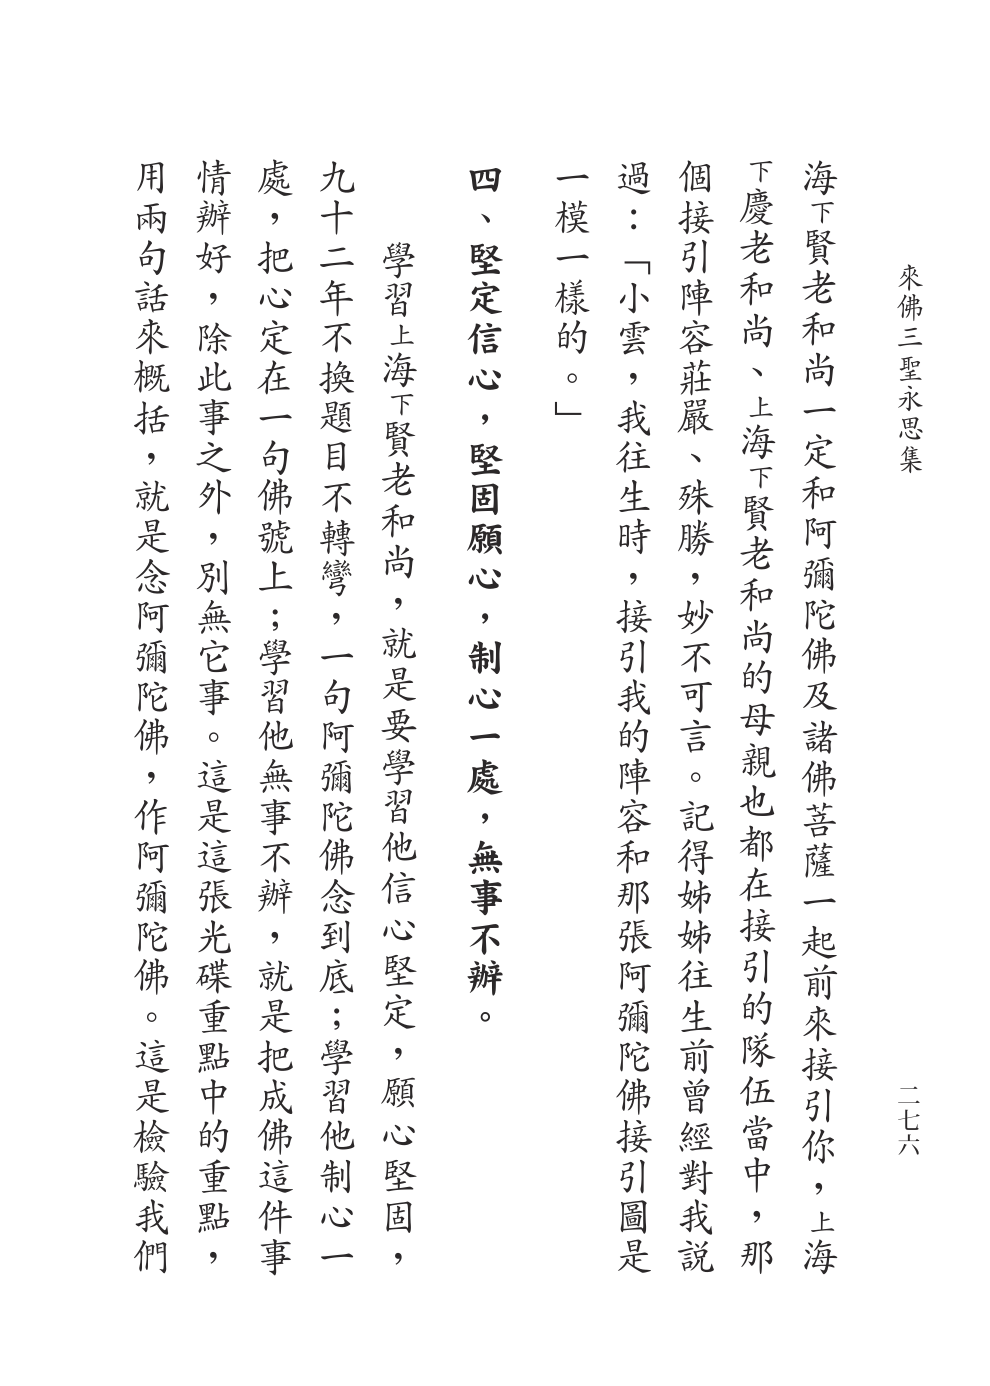 來佛三聖永思集
二七六
海下賢老和尚一定和阿彌陀佛及諸佛菩薩一起前來接引你，上海
下慶老和尚、上海下賢老和尚的母親也都在接引的隊伍當中，那
個接引陣容莊嚴、殊勝，妙不可言。記得姊姊往生前曾經對我説
過：「小雲，我往生時，接引我的陣容和那張阿彌陀佛接引圖是
一模一樣的。」
四、堅定信心，堅固願心，制心一處，無事不辦。
學習上海下賢老和尚，就是要學習他信心堅定，願心堅固，
九十二年不換題目不轉彎，一句阿彌陀佛念到底；學習他制心一
處，把心定在一句佛號上；學習他無事不辦，就是把成佛這件事
情辦好，除此事之外，別無它事。這是這張光碟重點中的重點，
用兩句話來概括，就是念阿彌陀佛，作阿彌陀佛。這是檢驗我們